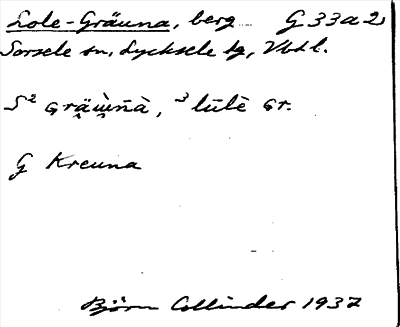 Lole-Gräuna, berg G 33 a 2
Sorsele sn, Lycksele lg, Vbtl.
S² Grä̬ẁ̬ñà, ³lūlè Gr.
G Kreuna
Björn Collinder 1937